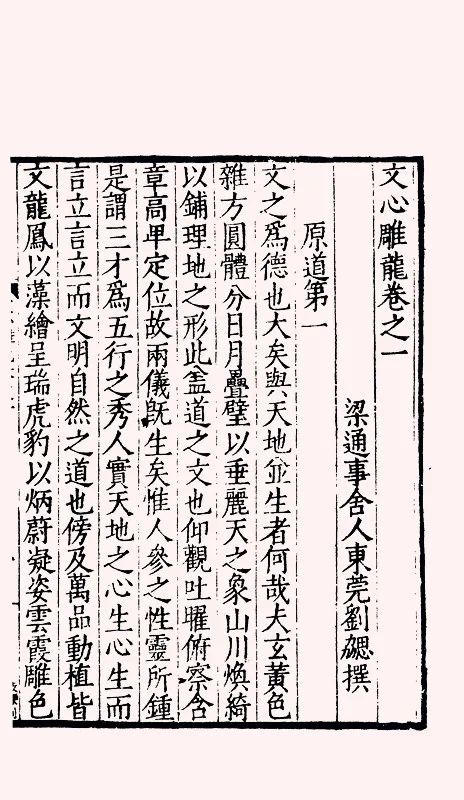 文心雕龍卷之一
梁通事舍人東莞劉勰撰
原道第一
文之爲德也大矣與天地並生者何哉夫玄黃色
雜方圓體分日月疊璧以垂麗天之象山川煥綺
以鋪理地之形此盖道之文也仰觀吐曜俯察含
章高卑定位故兩儀旣生矣惟人參之性靈所鍾
是謂三才爲五行之秀人實天地之心生心生而
言立言立而文明自然之道也傍及萬品動植皆
文龍鳳以藻繪呈瑞虎豹以炳蔚凝姿雲霞雕色